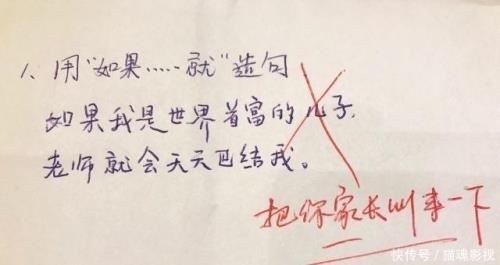 1、用“如果……就”造句
如果我是世界首富的儿子,
老师就会天天巴结我。
把你家长叫来一下
快传号/猫魂影视